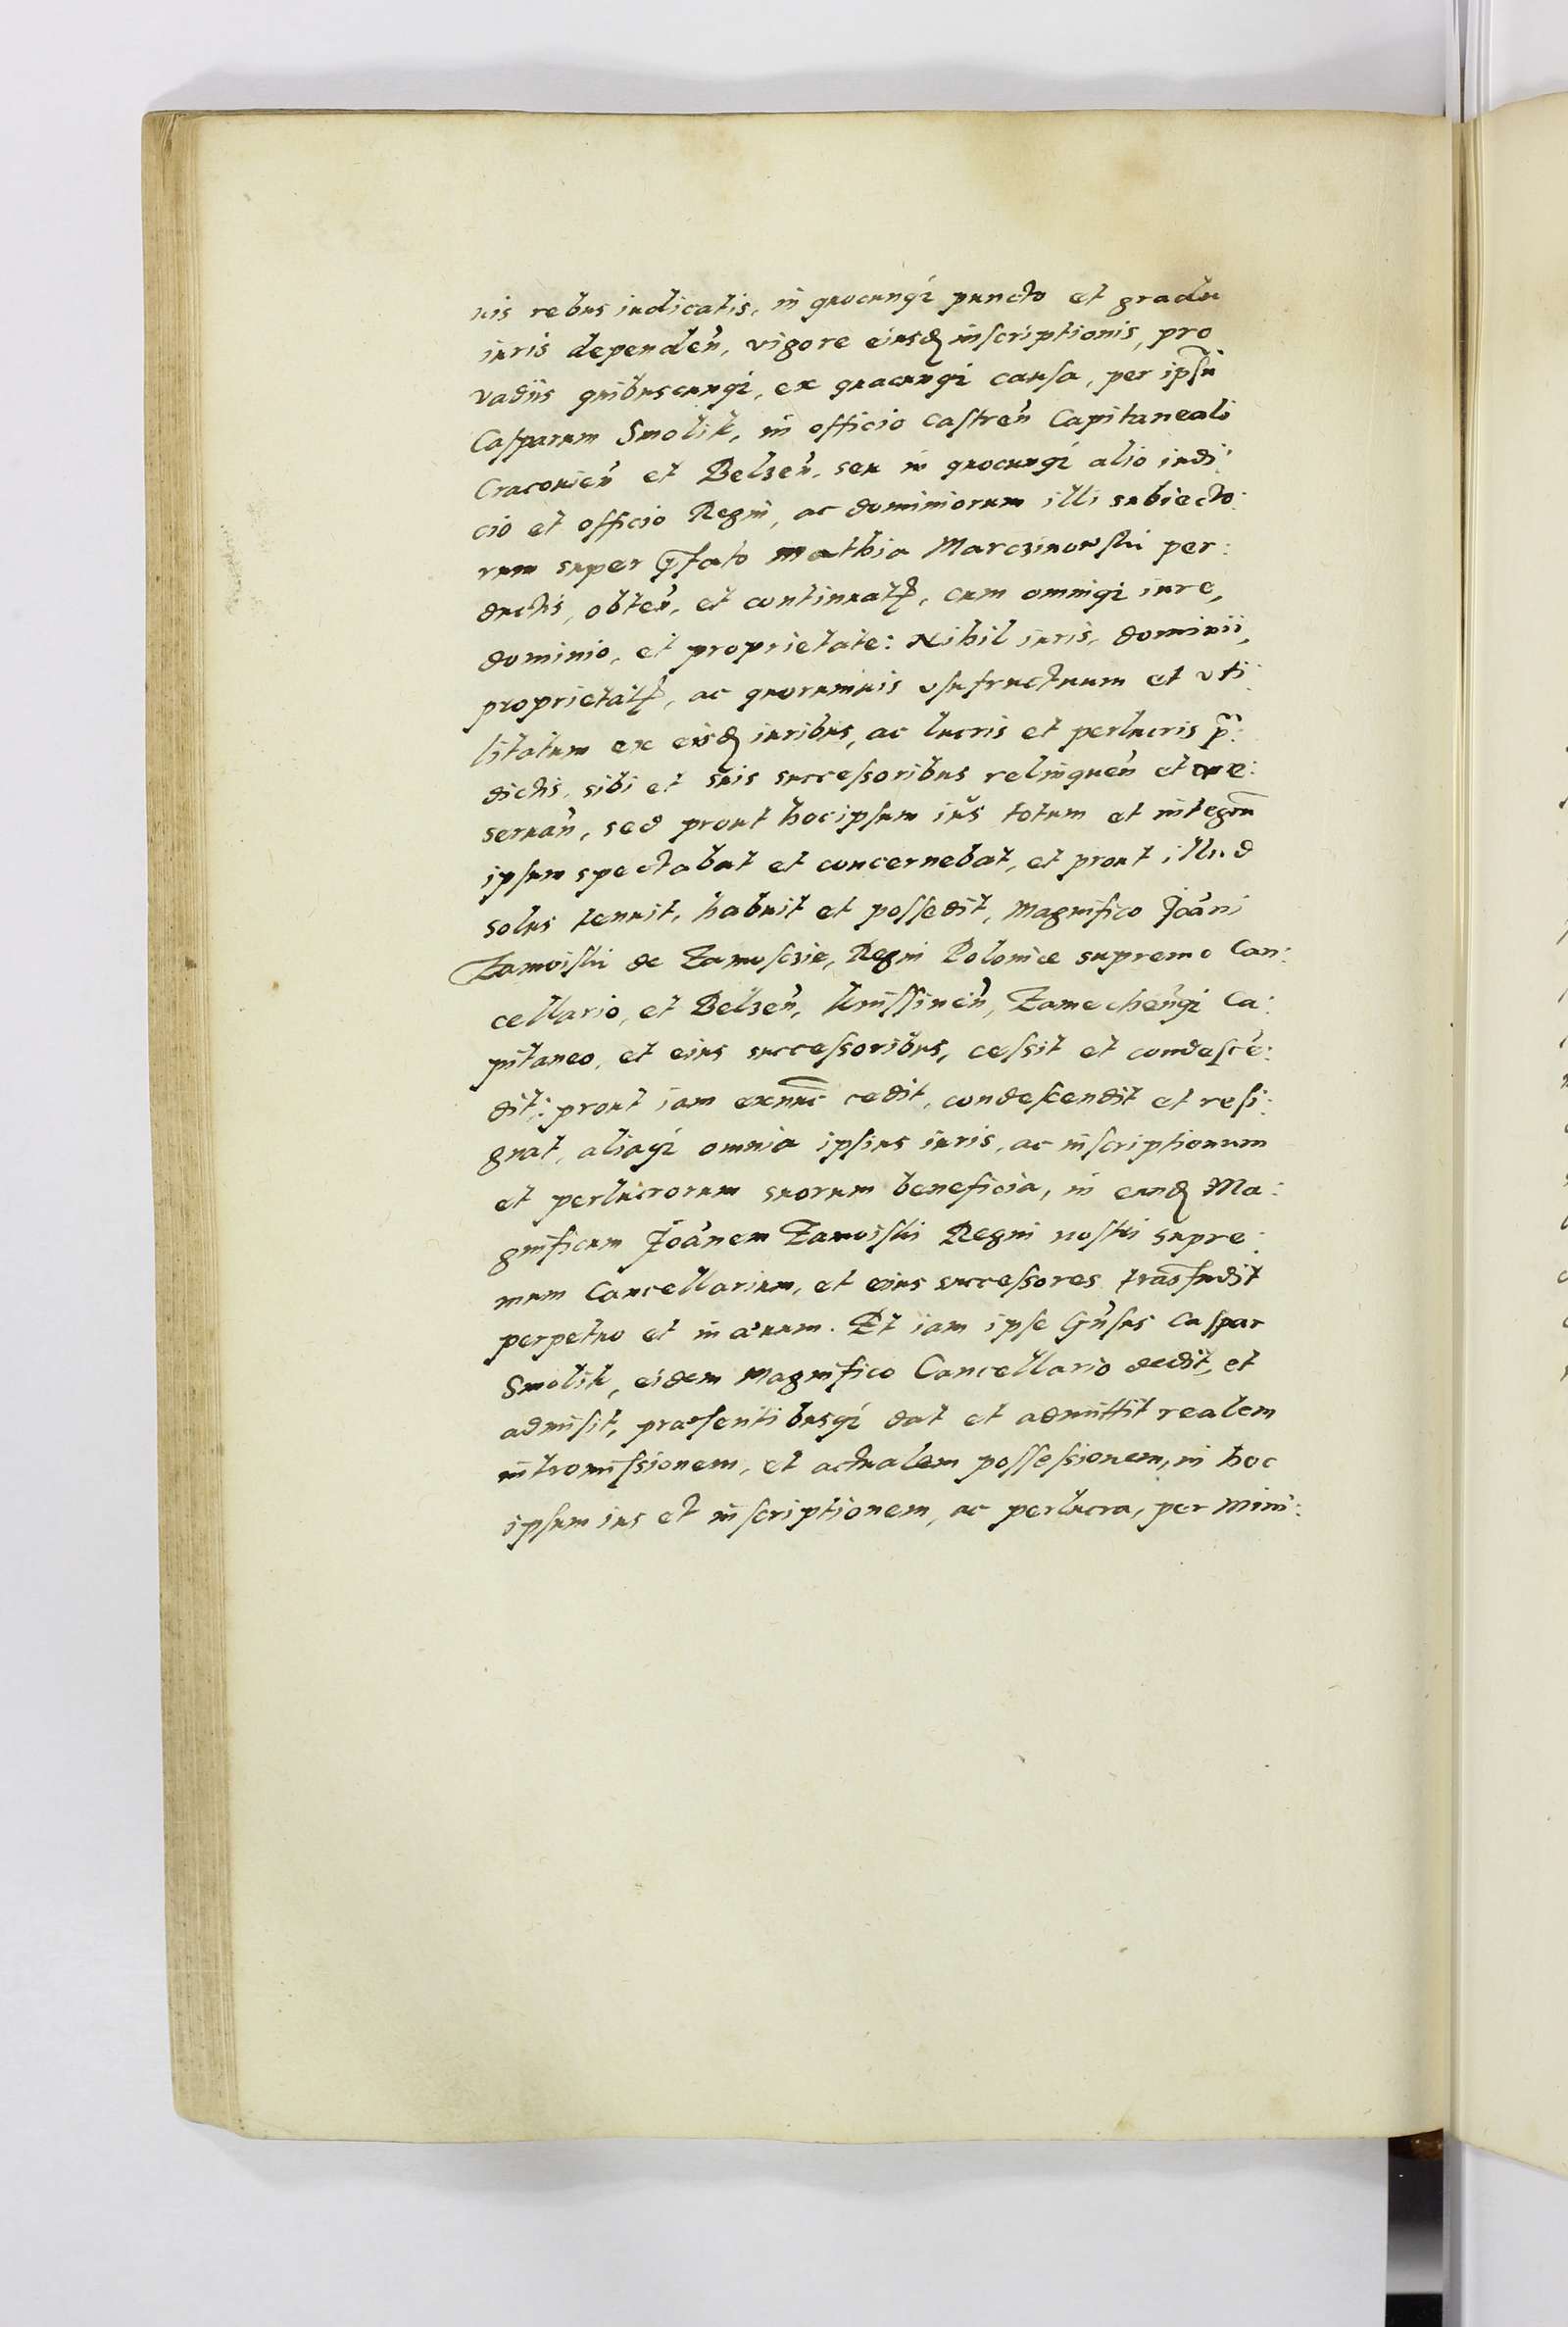 uis rebus iudicatis, in quocunq́ puncto et gradu
iuris dependeñ, vigore eiusđ inscriptionis, pro
vadiis quibuscunq́, ex quacunq́ causa, per ipsũ
Casparum Smolik, in officio castreñ Capitaneali
Cracouieñ et Belzeñ, seu in quocunq́ alio iudi:
cio et officio Regni, ac dominiorum illi subiecto:
rum super p̃fato Mathia Marczinowski per:
ductis, obteñ, et continuatꝭ, cum omniq́ iure,
dominio, et proprietate: Nihil iuris, dominii,
proprietatꝭ, ac quorumuis vsufructuum et vti:
litatum ex eisđ iuribus, ac lucris et perlucris p̃:
dictis, sibi et suis successoribus relinqueñ et re:
seruañ, sed prout hoc ipsum ius totum et integrũ
ipsum spectabat et concernebat, et prout illud
solus tenuit, habuit et possedit, Magnifico Joãni
Zamoiski de Zamoscie, Regni Poloniæ supremo Can:
cellario, et Belzeñ, knissineñ, Zamecheñq́ Ca:
pitaneo, et eius successoribus, cessit et condescẽ:
dit: prout iam exnunc cedit, condescendit et resi:
gnat, aliaq́ omnia ipsius iuris, ac inscriptionum
et perlucrorum suorum beneficia, in eunđ Ma:
gnificum Joãnem Zamoiski Regni nostri supre:
mum Cancellarium, et eius successores trãsfudit
perpetuo et in æuum. Et iam ipse Gñsus Caspar
Smolik, eidem Magnifico Cancellario dedit, et
admisit, præsentibusq́ dat et admittit realem
intromissionem, et actualem possessionem, in hoc
ipsum ius et inscriptionem, ac perlucra, per Mini: